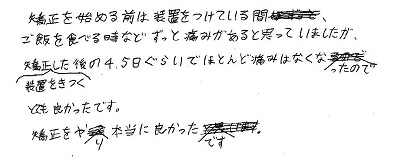 矯正を始める前は装置をつけている間、
ご飯を食べる時などずっと痛みがあると思っていましたが、
矯正した後の4.5日ぐらいでほとんど痛みはなくなったので
装置をきつく
とても良かったです。
矯正をやり本当に良かったです。